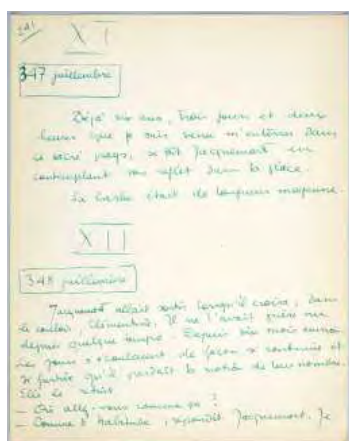 241
XI
347 juillembre
Déjà six ans, trois jours et deux
heures que je suis venu m'enterrer dans
ce sacré pays, se dit Jacquemort en
contemplant son reflet dans la glace.
La barbe était de longueur moyenne.
XII
348 juillembre
Jacquemort allait sortir lorsqu'il croisa, dans
le couloir, Clémentine. Il ne l'avait guère vue
depuis quelque temps. Depuis des mois
Les jours s'écoulaient de façon si continue et
si furtive qu'il perdait la notion de leur nombre.
Elle le
— Où allez-vous comme ça ?
— Comme d'habitude, répondit Jacquemort. Je